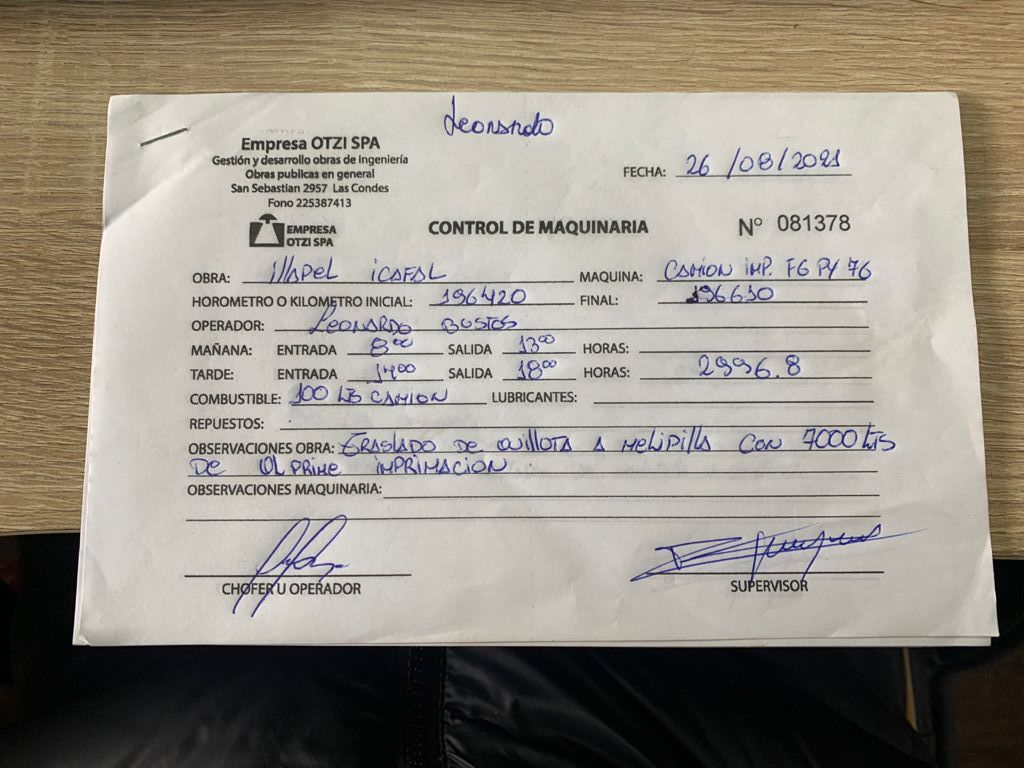 Leonardo
Empresa OTZI SPA
Gestión y desarrollo obras de Ingeniería
Obras publicas en general
San Sebastian 2957 Las Condes
Fono 225387413
FECHA: 26/08/2021
EMPRESA
OTZI SPA
CONTROL DE MAQUINARIA
Nº 081378
OBRA: illapel icafal MAQUINA: CAMION IMP. FG PY 76
HOROMETRO O KILOMETRO INICIAL: 196420 FINAL: 196610
OPERADOR: Leonardo Bustos
MAÑANA: ENTRADA 8:00 SALIDA 13:00 HORAS:
TARDE: ENTRADA 14:00 SALIDA 18:00 HORAS: 2996.8
COMBUSTIBLE: 100 LTS CAMION LUBRICANTES:
REPUESTOS:
OBSERVACIONES OBRA: TRASLADO DE QUILLOTA A MELIPILLA CON 7000 LTS
DE QL PRIME IMPRIMACION
OBSERVACIONES MAQUINARIA:
CHOFER U OPERADOR
SUPERVISOR